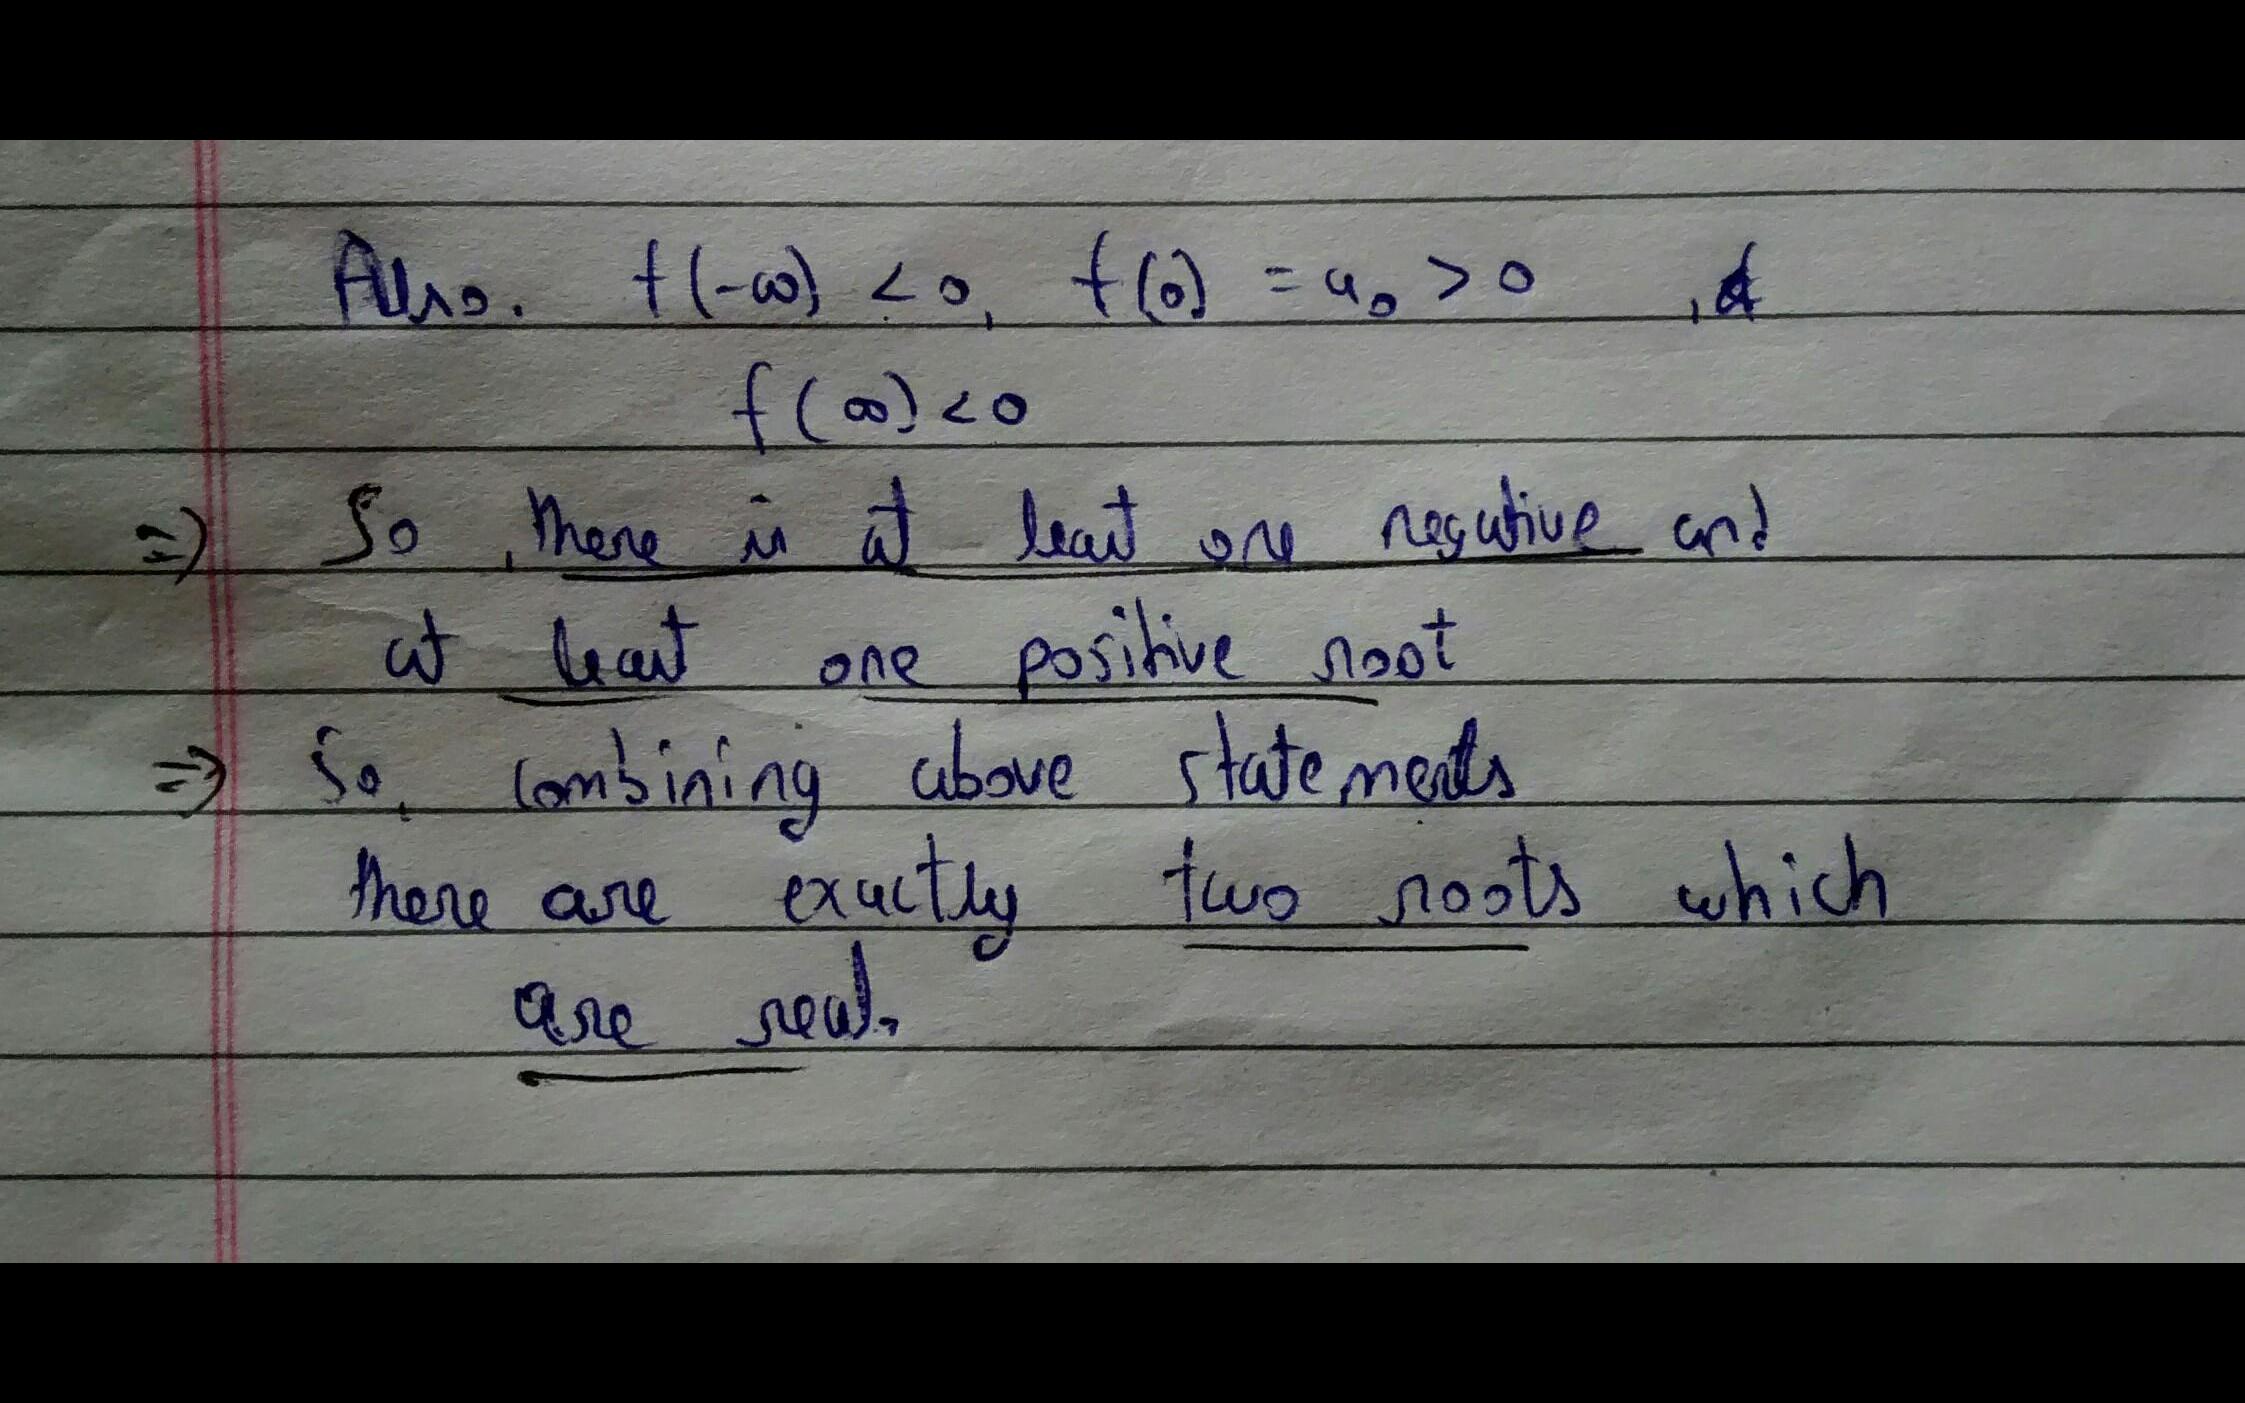 Also. f(-∞) < 0, f(0) = a₀ > 0 , &
f(∞) < 0
⇒ So, there is at least one negative and
at least one positive root
⇒ So, combining above statements
there are exactly two roots which
are real.